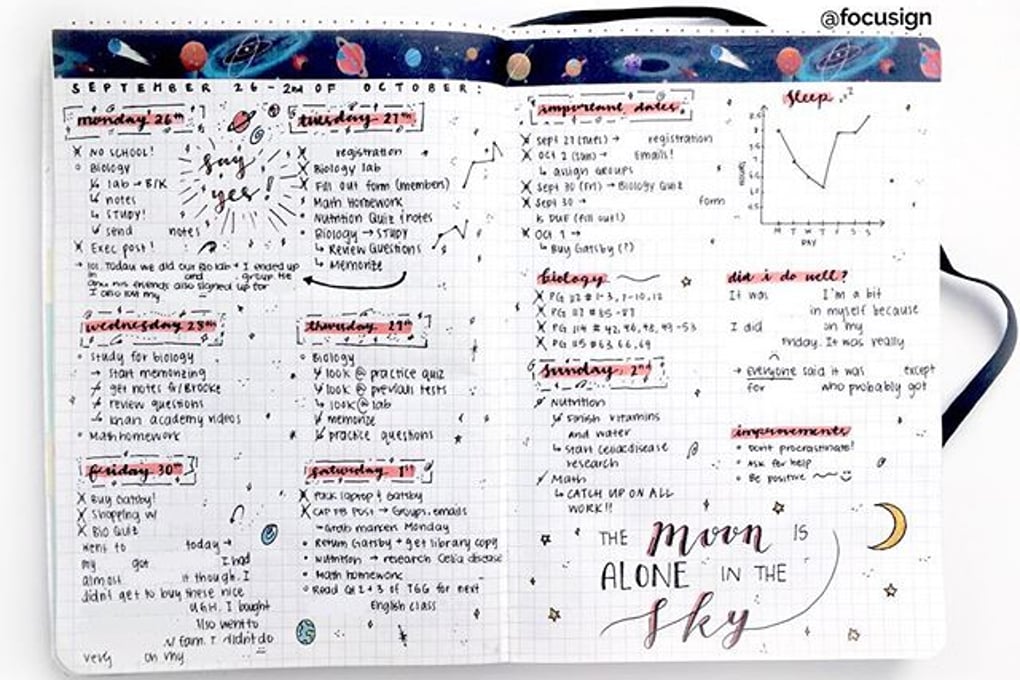 @focusign
SEPTEMBER 26 - 2nd OF OCTOBER:
monday 26th
NO SCHOOL!
Biology
lab → B/K
notes
study!
send notes
Exec post!
→ lol. Today we did our Bio lab + I ended up
in and group. He
and his friends also signed up for
I also lost my
say
yes!
tuesday 27th
registration
Biology lab
Fill out form (members)
Math Homework
Nutrition Quiz notes
Biology → study
↳ Review Questions
↳ Memorize
wednesday 28th
study for biology
→ Start memorizing
get notes fr/Brooke
review questions
khan academy videos
Math homework
thursday 29th
Biology
look @ practice quiz
look @ previous tests
look @ lab
memorize
practice questions
friday 30th
Buy Gatsby!
Shopping w/
Bio Quiz
Went to today →
my got I had
almost it though. I
didn't get to buy these nice
UGH. I bought
Also went to
w/ fam. I didn't do
very on my
saturday 1st
Pack laptop & Gatsby
Post → Groups, emails
Grab markers Monday
Return Gatsby + get library copy
Nutrition → research Celia disease
Math homework
Read CH 2 + 3 of TGG for next
English class
important dates
Sept 27 (tues) → registration
Oct 2 (sun) → Emails!
↳ assign groups
Sept 30 (Fri) → Biology Quiz
Sept 30 → form
↳ DUE (fill out!)
Oct 1 →
↳ Buy Gatsby (?)
Sleep
hours
M T W T F S S
DAY
biology
PG 112 # 1-3, 7-10, 12
PG 117 # 85-87
PG 114 # 42, 46, 48, 49-53
PG 115 # 63, 66, 69
did i do well?
It was I'm a bit
in myself because
I did on my
Friday. It was really
→ everyone said it was except
for who probably got
sunday 2nd
Nutrition
Finish vitamins
and water
↳ Start Celiac disease
research
Math
↳ CATCH UP ON ALL
WORK!!
improvements
Don't procrastinate!
Ask for help
Be positive
THE moon IS
ALONE IN THE
sky